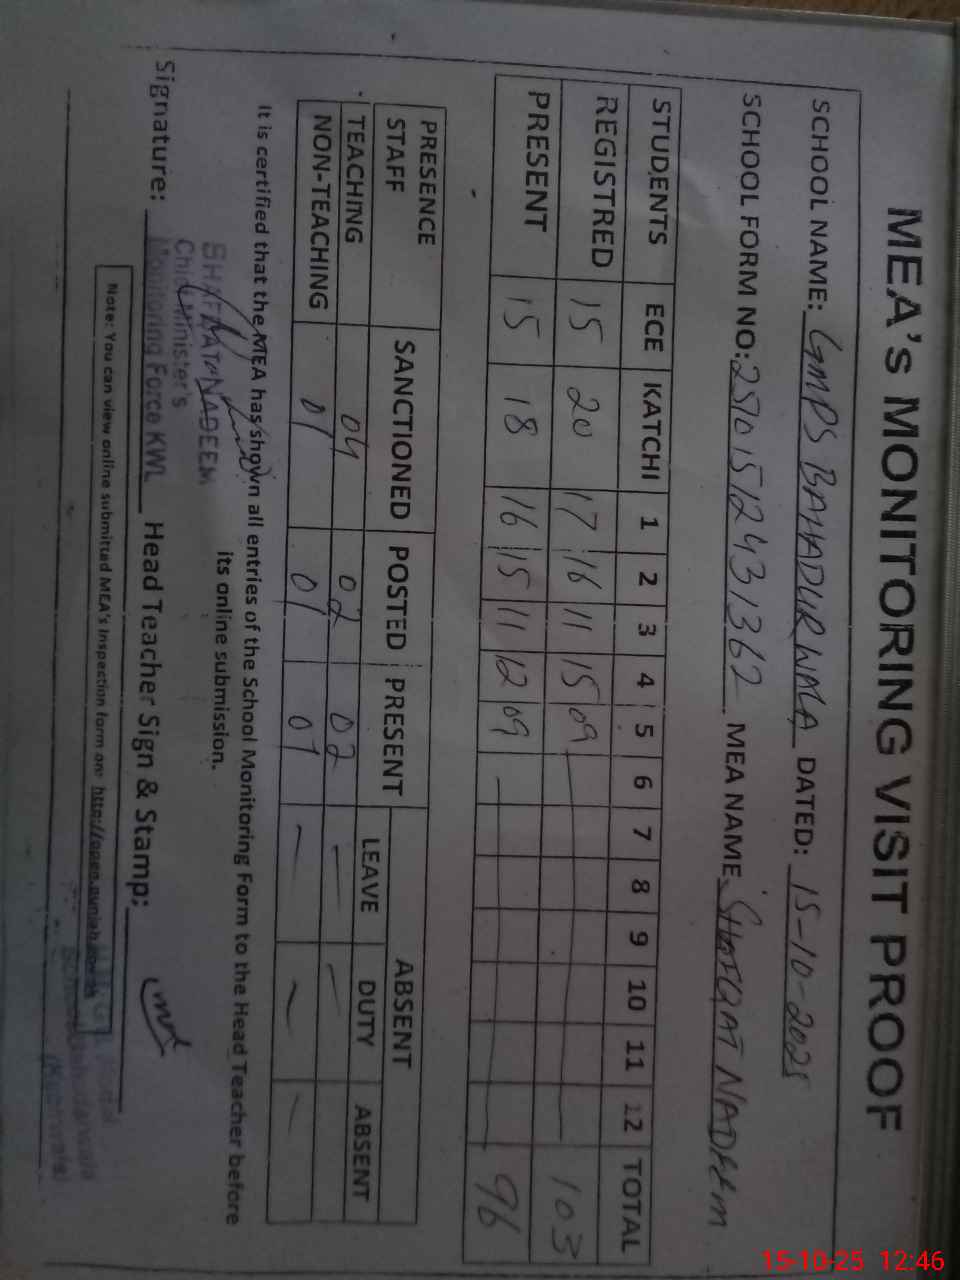 MEA's MONITORING VISIT PROOF
SCHOOL NAME: GMPS BAHADUR WALA DATED: 15-10-2025
SCHOOL FORM NO: 25101512431362 MEA NAME SHAFQAT NADEEM
STUDENTS ECE KATCHI 1 2 3 4 5 6 7 8 9 10 11 12 TOTAL
REGISTRED 15 20 17 16 11 15 09 — 103
PRESENT 15 18 16 15 11 12 09 — 96
PRESENCE STAFF SANCTIONED POSTED PRESENT ABSENT
LEAVE DUTY ABSENT
TEACHING 04 02 02 — —
NON-TEACHING 01 01 01 — — —
It is certified that the MEA has shown all entries of the School Monitoring Form to the Head Teacher before
its online submission.
SHAFQAT NADEEM
Chief Minister's
Monitoring Force KWL
Signature: Head Teacher Sign & Stamp:
Note: You can view online submitted MEA's inspection form on: http://open.punjab.gov.pk
15-10-25 12:46